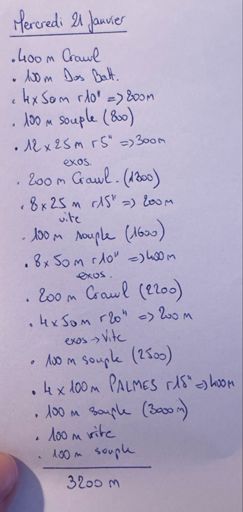 Mercredi 21 Janvier
• 400 m Crawl
• 100 m Dos Batt.
• 4 x 50 m r10" => 200 m
• 100 m souple (800)
• 12 x 25 m r5" => 300 m
exos.
• 200 m Crawl. (1300)
• 8 x 25 m r15" => 200 m
vite
• 100 m souple (1600)
• 8 x 50 m r10" => 400 m
exos.
• 200 m Crawl (2200)
• 4 x 50 m r20" => 200 m
exos → Vite
• 100 m souple (2500)
• 4 x 100 m PALMES r15" => 400 m
• 100 m souple (3000 m)
• 100 m vite
• 100 m souple
3200 m